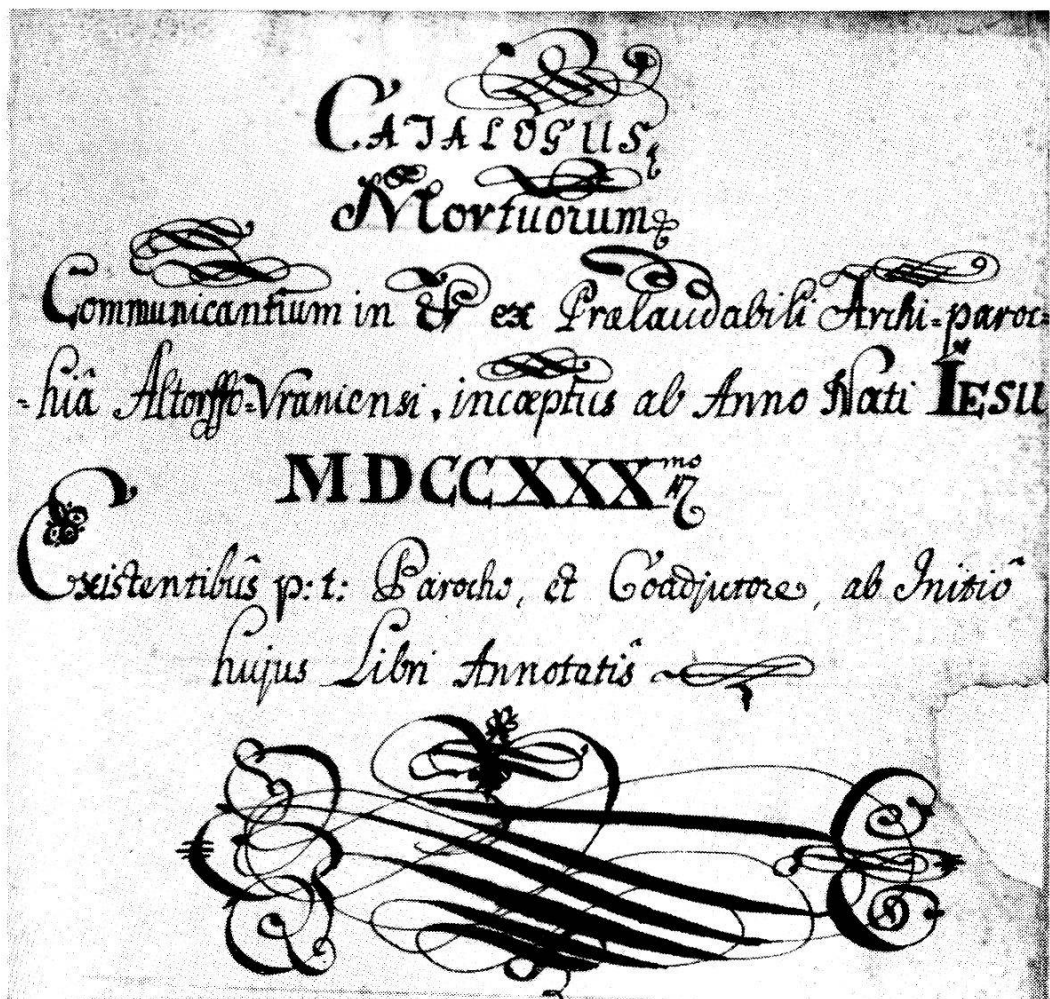 CATALOGUS
Mortuorum
Communicantium in & ex Prælaudabili Archi=paroc=
=hiâ Altorffo=Vraniensi, incæptus ab Anno Nati IESU
MDCCXXXmo
Existentibûs p:t: Parocho, et Coadjutore, ab Initiô
hujus Libri Annotatîs